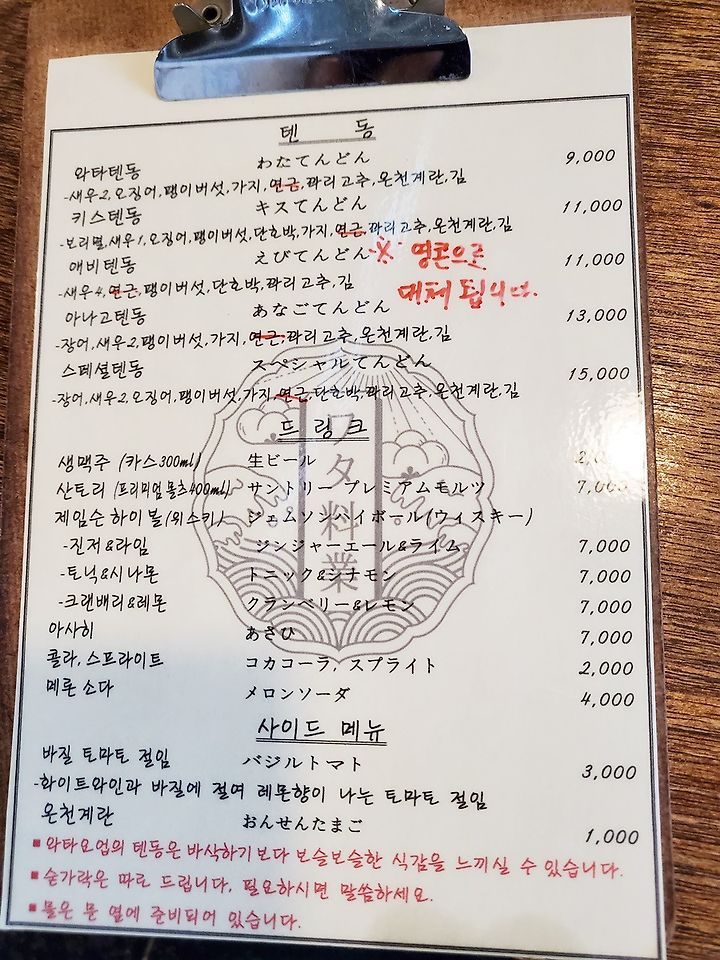 텐 동
와타텐동 わたてんどん 9,000
-새우2,오징어,팽이버섯,가지,연근,꽈리고추,온천계란,김
키스텐동 キスてんどん 11,000
-보리멸,새우1,오징어,팽이버섯,단호박,가지,연근,꽈리고추,온천계란,김
애비텐동 えびてんどん 11,000
※ 영콘으로
대체 됩니다.
-새우4,연근,팽이버섯,단호박,꽈리고추,김
아나고텐동 あなごてんどん 13,000
-장어,새우2,팽이버섯,가지,연근,꽈리고추,온천계란,김
스페셜텐동 スペシャルてんどん 15,000
-장어,새우2,오징어,팽이버섯,가지,연근,단호박,꽈리고추,온천계란,김
드링크
생맥주 (카스300ml) 生ビール
산토리 (프리미엄 몰츠400ml) サントリー プレミアムモルツ 7,000
제임슨 하이볼(위스키) ジェムソンハイボール(ウィスキー)
-진저&라임 ジンジャーエール&ライム 7,000
-토닉&시나몬 トニック&シナモン 7,000
-크랜배리&레몬 クランベリー&レモン 7,000
아사히 あさひ 7,000
콜라, 스프라이트 コカコーラ, スプライト 2,000
메론 소다 メロンソーダ 4,000
ワタ料業
사이드 메뉴
바질 토마토 절임 バジルトマト 3,000
-화이트와인과 바질에 절여 레몬향이 나는 토마토 절임
온천계란 おんせんたまご 1,000
▪와타요업의 텐동은 바삭하기보다 보슬보슬한 식감을 느끼실 수 있습니다.
▪숟가락은 따로 드립니다. 필요하시면 말씀하세요.
▪물은 문 옆에 준비되어 있습니다.